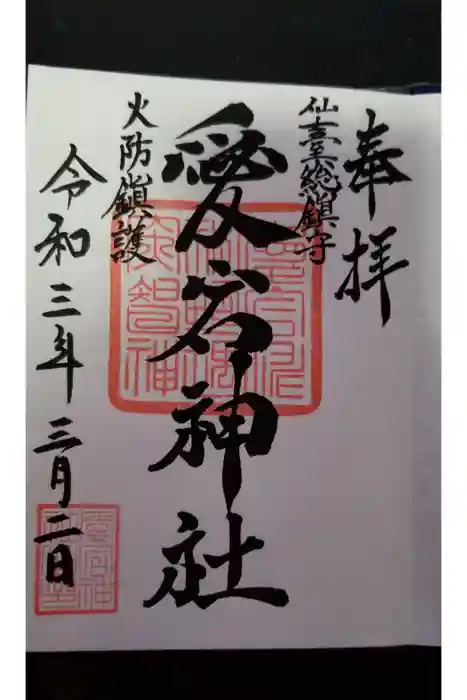 奉拝
仙臺総鎮守
愛宕神社
火防鎮護
令和三年三月二日